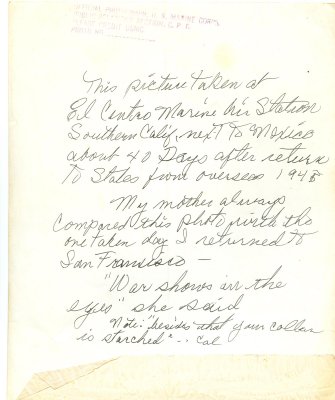 OFFICIAL PHOTO U. S. MARINE CORPS
This picture taken at
El Centro Marine Air Station
Southern Calif. next to Mexico
about 40 Days after return
to States from overseas 1948
My mother always
compared this photo with the
one taken day I returned to
San Francisco —
"War shows in the
eyes" she said
Note: "besides that your collar
is starched" -- Cal